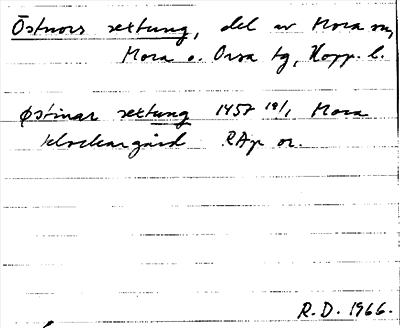 Östnors settung, del av Mora sn,
Mora o. Orsa tg, Kopp. l.
Østinar settung 1458 18/1 Mora
klockargård RAp or.
R.D. 1966.